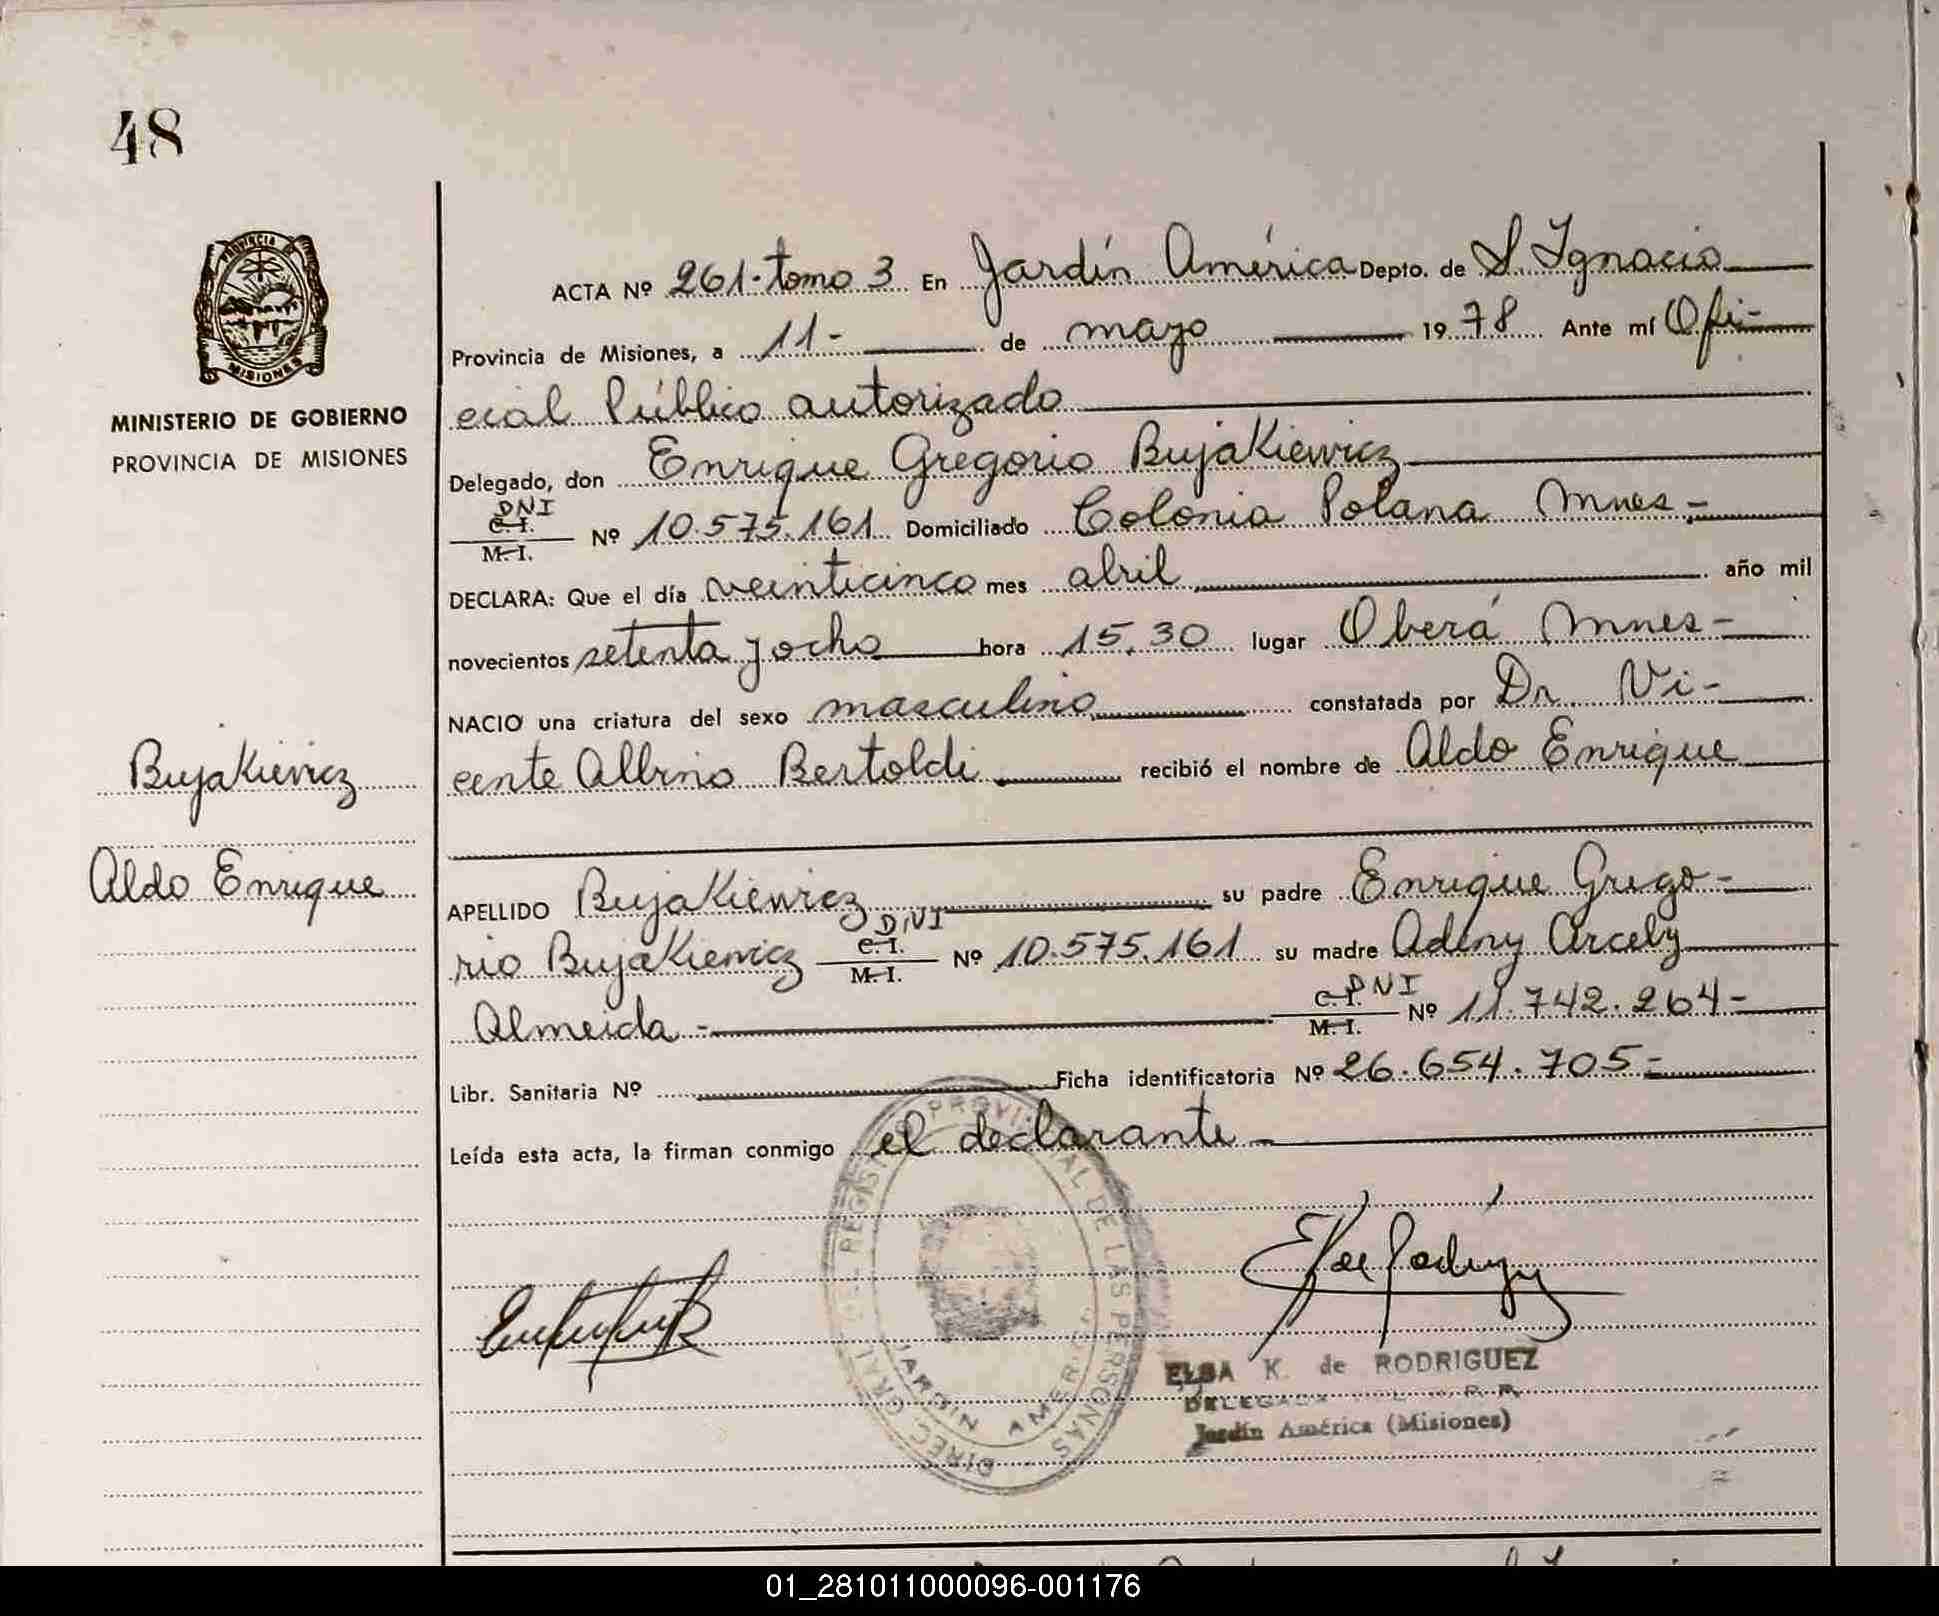 48
PROVINCIA DE
MISIONES
MINISTERIO DE GOBIERNO
PROVINCIA DE MISIONES
Bujakiewicz
Aldo Enrique
ACTA Nº 261-tomo 3 En Jardín América Depto. de S. Ignacio
Provincia de Misiones, a 11- de mayo 19 78 Ante mí Ofi-
cial Público autorizado
Delegado, don Enrique Gregorio Bujakiewicz
DNI
C.I.
M.I. Nº 10.575.161 Domiciliado Colonia Polana Mnes-
DECLARA: Que el día veinticinco mes abril año mil
novecientos setenta y ocho hora 15,30 lugar Oberá Mnes-
NACIO una criatura del sexo masculino constatada por Dr. Vi-
cente Albino Bertoldi recibió el nombre de Aldo Enrique
APELLIDO Bujakiewicz su padre Enrique Grego-
rio Bujakiewicz DNI C.I. M.I. Nº 10.575.161 su madre Adeny Arcely
Almeida - DNI C.I. M.I. Nº 11.742.264-
Libr. Sanitaria Nº Ficha identificatoria Nº 26.654.705-
Leída esta acta, la firman conmigo el declarante
DIREC. GRAL. DEL REGISTRO PROVINCIAL DE LAS PERSONAS
JARDIN AMERICA
ELSA K. de RODRIGUEZ
DELEGADA
Jardín América (Misiones)
01_281011000096-001176